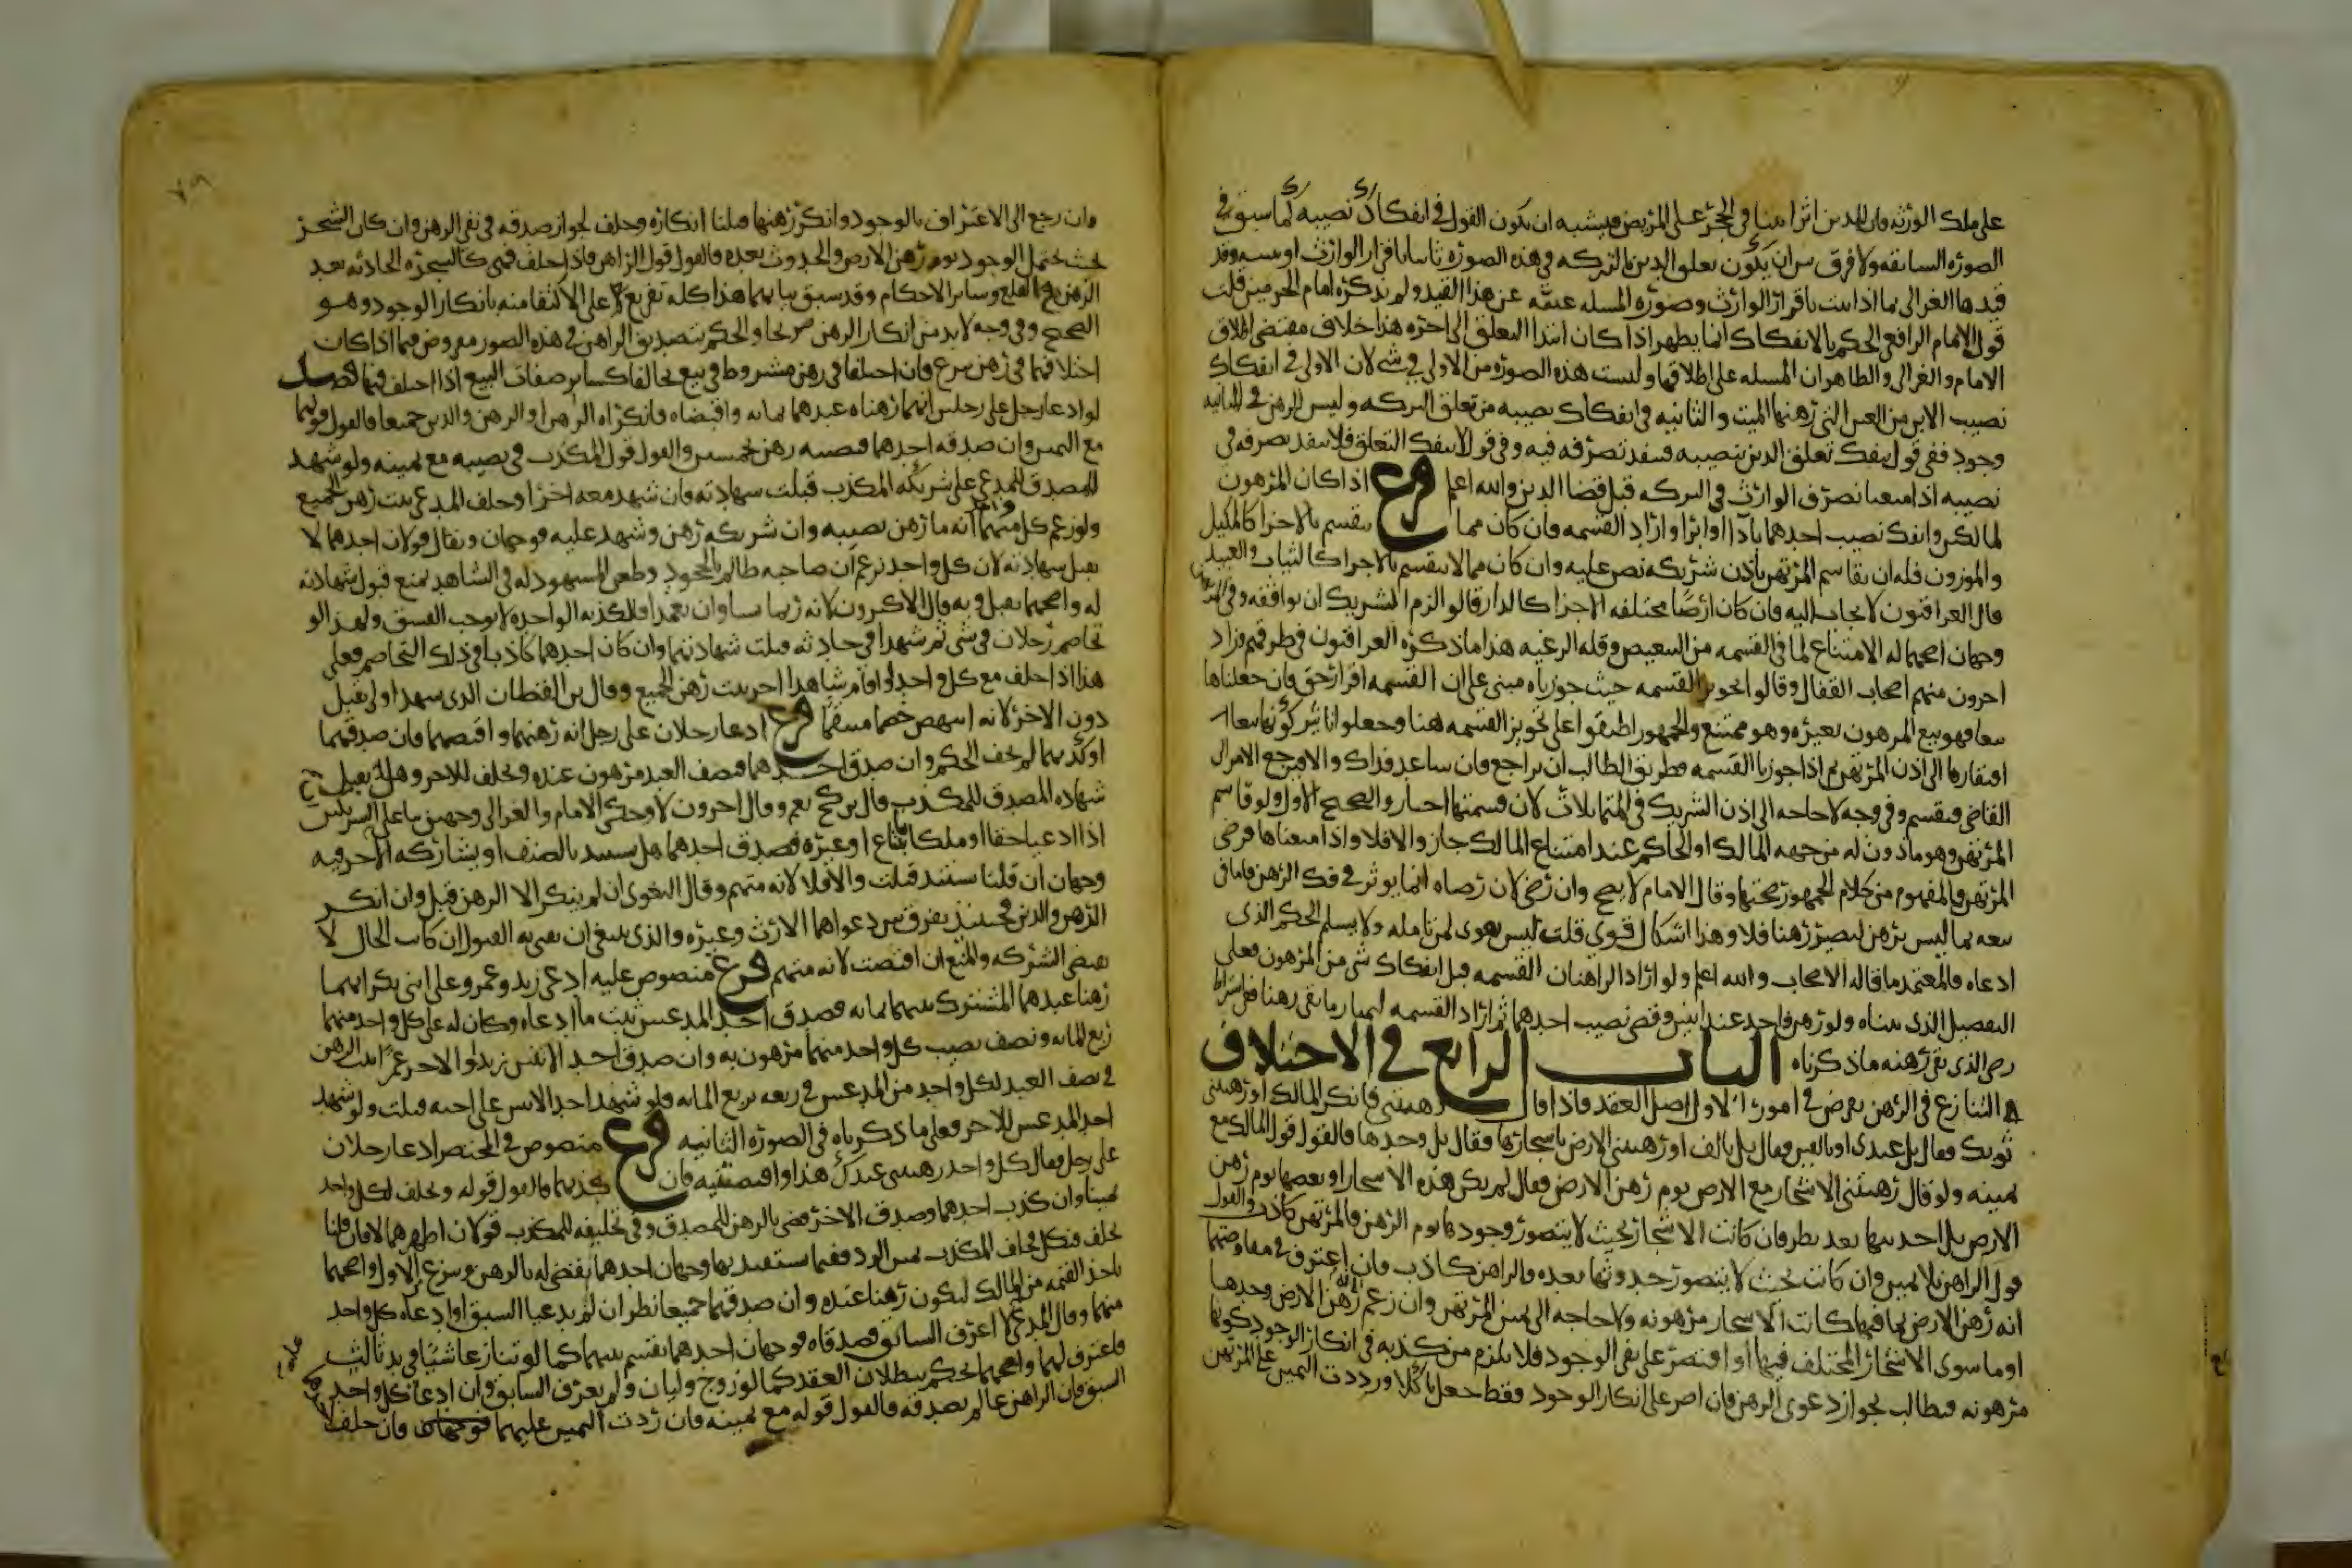 على ملك الورثه فان للدين اثرا بينا في الحجر على المريض فيشبه ان يكون القول في انفكاك نصيبه كما سبق في
الصوره السابقه ولا فرق بين ان يكون تعلق الدين بالتركه في هذه الصوره ثابتا باقرار الوارث او ببينه وقد
قيدها الغزالي بما اذا ثبت باقرار الوارث وصوره المسله عنه عن هذا القيد ولم يذكره امام الحرمين قلت
قول الامام الرافعي الحكم بالانفكاك انما يظهر اذا كان ابتدا التعلق الى اخره هذا خلاف مقتضى اطلاق
الامام والغزالي والظاهر ان المسله على اطلاقها وليست هذه الصوره من الاولى في شي لان الاولى في انفكاك
نصيب الابن من العين التي رهنها الميت والثانيه في انفكاك نصيبه من تعلق التركه وليس الرهن في الثانيه
وجود ففي قول ينفك تعلق الدين بنصيبه فينفذ تصرفه فيه وفي قول لا ينفك التعلق فلا ينفذ تصرفه في
نصيبه اذا منعنا تصرف الوارث في التركه قبل قضا الدين والله اعلم فرع اذا كان المرهون
لمالكين وانفك نصيب احدهما بادا او ابرا واراد القسمه فان كان مما ينقسم بالاجزا كالمكيل
والموزون فله ان يقاسم المرتهن باذن شريكه نص عليه وان كان مما لا ينقسم بالاجزا كالثياب والعبيد
قال العراقيون لا يجاب اليه فان كان ارضا مختلفه الاجزا كالدار قالوا لزم الشريك ان يوافقه وفي
وجهان اصحهما له الامتناع لما في القسمه من التبعيض وقله الرغبه هذا ما ذكره العراقيون في طرقهم وزاد
اخرون منهم اصحاب القفال وقالوا تجويز القسمه حيث جوزناه مبني على ان القسمه افراز حق فان جعلناها
بيعا فهو بيع المرهون بغيره وهو ممتنع والجمهور اطبقوا على تجويز القسمه هنا وجعلوا تاثير كونها بيعا
افتقارها الى اذن المرتهن ثم اذا جوزنا القسمه فطريق الطالب ان يراجع فان ساعد فذاك والا فيرجع الامر الى
القاضي فيقسم وفي وجه لا حاجه الى اذن الشريك في المتماثلات لان قسمتها اجبار والصحيح الاول ولو قاسم
المرتهن وهو ماذون له من جهه المالك او الحاكم عند امتناع المالك جاز والا فلا واذا منعناها فرضي
المرتهن فالمفهوم من كلام الجمهور صحتها وقال الامام لا يصح وان رضي لان رضاه انما يوثر في فك الرهن فاما في
بيعه بما ليس برهن ليصير رهنا فلا وهذا اشكال قوي قلت ليس بقوى لمن تامله ولا يسلم الحكم الذي
ادعاه فالمعتمد ما قاله الاصحاب والله اعلم ولو اراد الراهنان القسمه قبل انفكاك شي من المرهون فعلى
التفصيل الذي بيناه ولو رهن واحد عند اثنين وقضى نصيب احدهما ثم اراد القسمه ليمتاز ما بقي رهنا ففي اشتراط
رضى الذي بقي رهنه ما ذكرناه الباب الرابع في الاختلاف
التنازع في الرهن يفرض في امور الاول اصل العقد فاذا قال رهنتني فانكر المالك او رهنتني
ثوبك فقال بل عبدي او بالفين فقال بل بالف او رهنتني الارض باشجارها فقال بل وحدها فالقول قول المالك مع
يمينه ولو قال رهنتني الاشجار مع الارض يوم رهن الارض فقال لم يكن هذه الاشجار او بعضها يوم رهن
الارض بل احدثتها بعد نظر فان كانت الاشجار بحيث لا يتصور وجودها يوم الرهن فالمرتهن كاذب والقول
قول الراهن بلا يمين وان كانت بحيث لا يتصور حدوثها بعده فالراهن كاذب فان اعترف في مفاوضتهما
انه رهن الارض بما فيها كانت الاشجار مرهونه ولا حاجه الى يمين المرتهن وان زعم رهن الارض وحدها
او ما سوى الاشجار المختلف فيها او اقتصر على نفي الوجود فلا يلزم من كذبه في انكار الوجود كونها
مرهونه فيطالب بجواز دعوى الرهن فان اصر على انكار الوجود فقط جعل ناكلا ورددت اليمين على المرتهن
فان رجع الى الاعتراف بالوجود وانكر رهنها قبلنا انكاره وحلف لجواز صدقه في نفي الرهن وان كان الشجر
بحيث يحتمل الوجود يوم رهن الارض والحدوث بعده فالقول قول الراهن فاذا حلف فهي كالشجره الحادثه بعد
الرهن في القلع وساير الاحكام وقد سبق بيانها هذا كله تفريع على الاكتفا منه بانكار الوجود وهو
الصحيح وفي وجه لا بد من انكار الرهن صريحا والحكم بتصديق الراهن في هذه الصور مفروض فيما اذا كان
اختلافهما في رهن تبرع فان اختلفا في رهن مشروط في بيع تحالفا كساير صفات البيع اذا اختلف فيها فصل
لو ادعا رجل على رجلين انهما رهناه عبدهما بمايه واقبضاه فانكراه الرهن او الرهن والدين جميعا فالقول قولهما
مع اليمين وان صدقه احدهما فنصيبه رهن بخمسين والقول قول المكذب في نصيبه مع يمينه ولو شهد
المصدق للمدعي على شريكه المكذب قبلت شهادته فان شهد معه اخر او حلف المدعي ثبت رهن الجميع
ولو زعم كل منهما انه ما رهن نصيبه وان شريكه رهن وشهد عليه فوجهان ويقال قولان احدهما لا
يقبل شهادته لان كل واحد يزعم ان صاحبه ظالم بالجحود وطعن المشهود له في الشاهد يمنع قبول شهادته
له واصحهما يقبل وبه قال الاكثرون لانه ربما نسيا وان تعمدا فالكذبه الواحده لا توجب الفسق ولهذا لو
تخاصم رجلان في شي ثم شهدا في حادثه قبلت شهادتهما وان كان احدهما كاذبا في ذلك التخاصم فعلى
هذا اذا حلف مع كل واحد او اقام شاهدا اخر ثبت رهن الجميع وقال بن القطان الذي شهد اولا يقبل
دون الاخر لانه انتهض خصما منتقما فرع ادعا رجلان على رجل انه رهنهما واقبضهما فان صدقهما
او كذبهما لم يخف الحكم وان صدق احدهما فنصف العبد مرهون عنده ويحلف للاخر وهل يقبل
شهاده المصدق للمكذب قال بن كج نعم وقال اخرون لا وحكى الامام والغزالي وجهين بنا على الشريكين
اذا ادعيا حقا او ملكا بابتياع او غيره فصدق احدهما هل يستبد بالنصف او يشاركه الاخر فيه
وجهان ان قلنا يستبد قبلت والا فلا لانه متهم وقال البغوي ان لم ينكر الا الرهن قبل وان انكر
الرهن والدين فحينئذ يفرق بين دعواهما الارث وغيره والذي ينبغي ان يفتى به القبول ان كانت الحال لا
تقتضي الشركه والمنع ان اقتضت لانه متهم فرع منصوص عليه ادعى زيد وعمرو على ابني بكر انهما
رهنا عبدهما المشترك بينهما بمايه فصدق احد المدعيين ثبت ما ادعاه وكان له على كل واحد منهما
ربع المايه ونصف نصيب كل واحد منهما مرهون به وان صدق احد الابنين زيدا والاخر عمرا ثبت الرهن
في نصف العبد لكل واحد من المدعيين في ربعه بربع المايه فلو شهد احد الابنين على اخيه قبلت ولو شهد
احد المدعيين للاخر فعلى ما ذكرناه في الصوره الثانيه فرع منصوص في المختصر ادعا رجلان
على رجل فقال كل واحد رهنتني عبدك هذا واقبضتنيه فان كذبهما فالقول قوله ويحلف لكل واحد
يمينا وان كذب احدهما وصدق الاخر قضي بالرهن للمصدق وفي تحليفه للمكذب قولان اظهرهما لا فان قلنا
يحلف فنكل فحلف المكذب يمين الرد ففيما يستفيد بها وجهان احدهما يقضى له بالرهن وينزع من الاول واصحهما
ياخذ القيمه من المالك ليكون رهنا عنده وان صدقهما جميعا نظر ان لم يدعيا السبق او ادعاه كل واحد
منهما وقال المدعي لا اعرف السابق فصدقاه فوجهان احدهما يقسم بينهما كما لو تنازعا شيا في يد ثالث
فاعترف لهما واصحهما يحكم ببطلان العقد كما لو زوج وليان ولم يعرف السابق وان ادعا كل واحد
السبق وان الراهن عالم بصدقه فالقول قوله مع يمينه فان ردت اليمين عليهما فان حلف